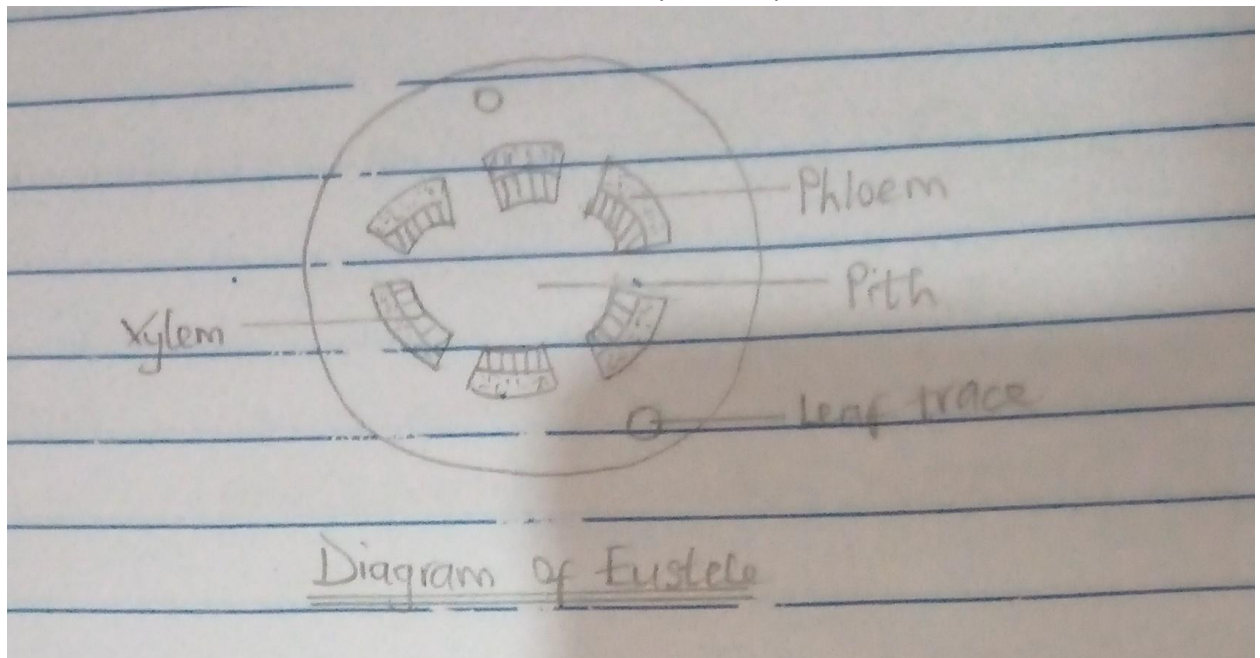 Phloem
Pith
Xylem
Leaf trace
Diagram of Eustele